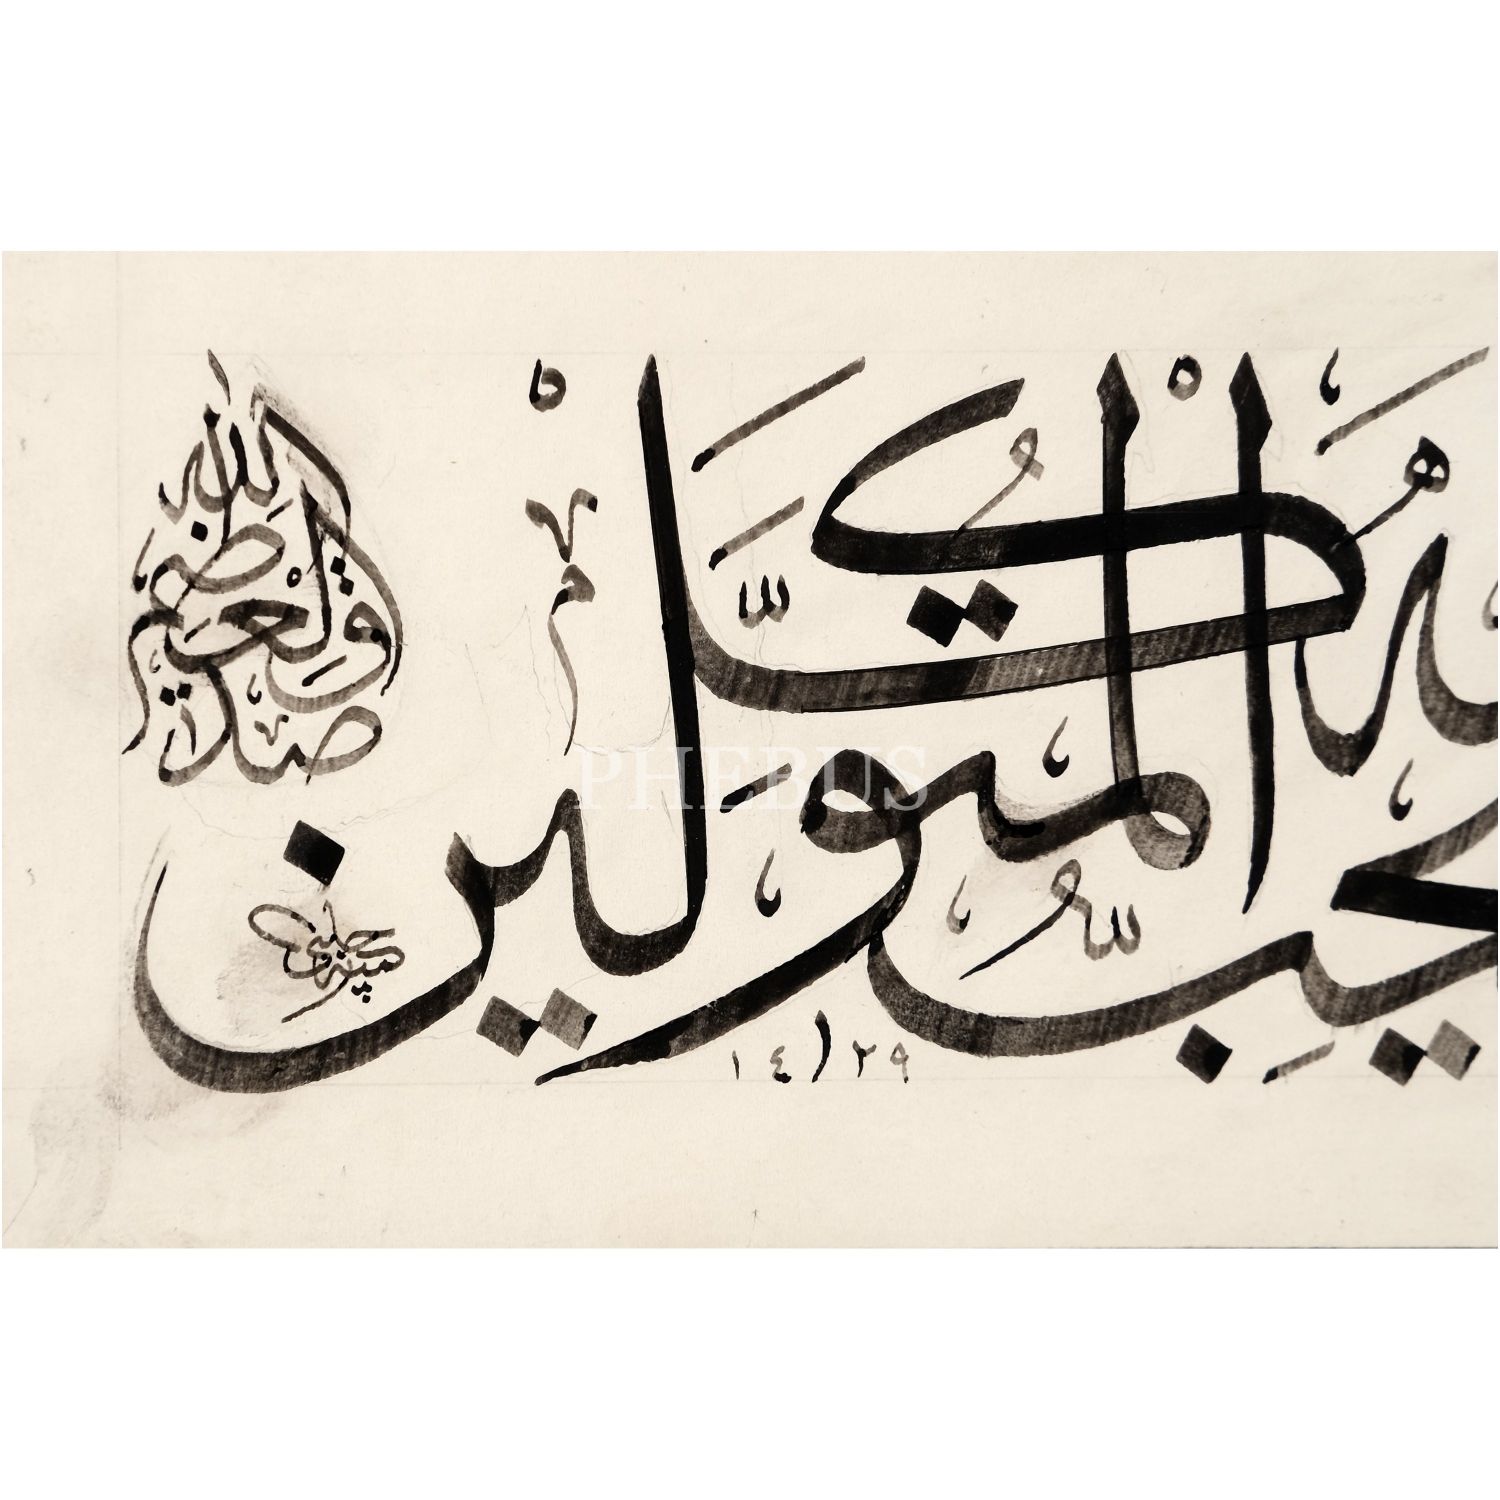 يحب المتوكلين
صدق الله العظيم
١٤٢٩
PHEBUS